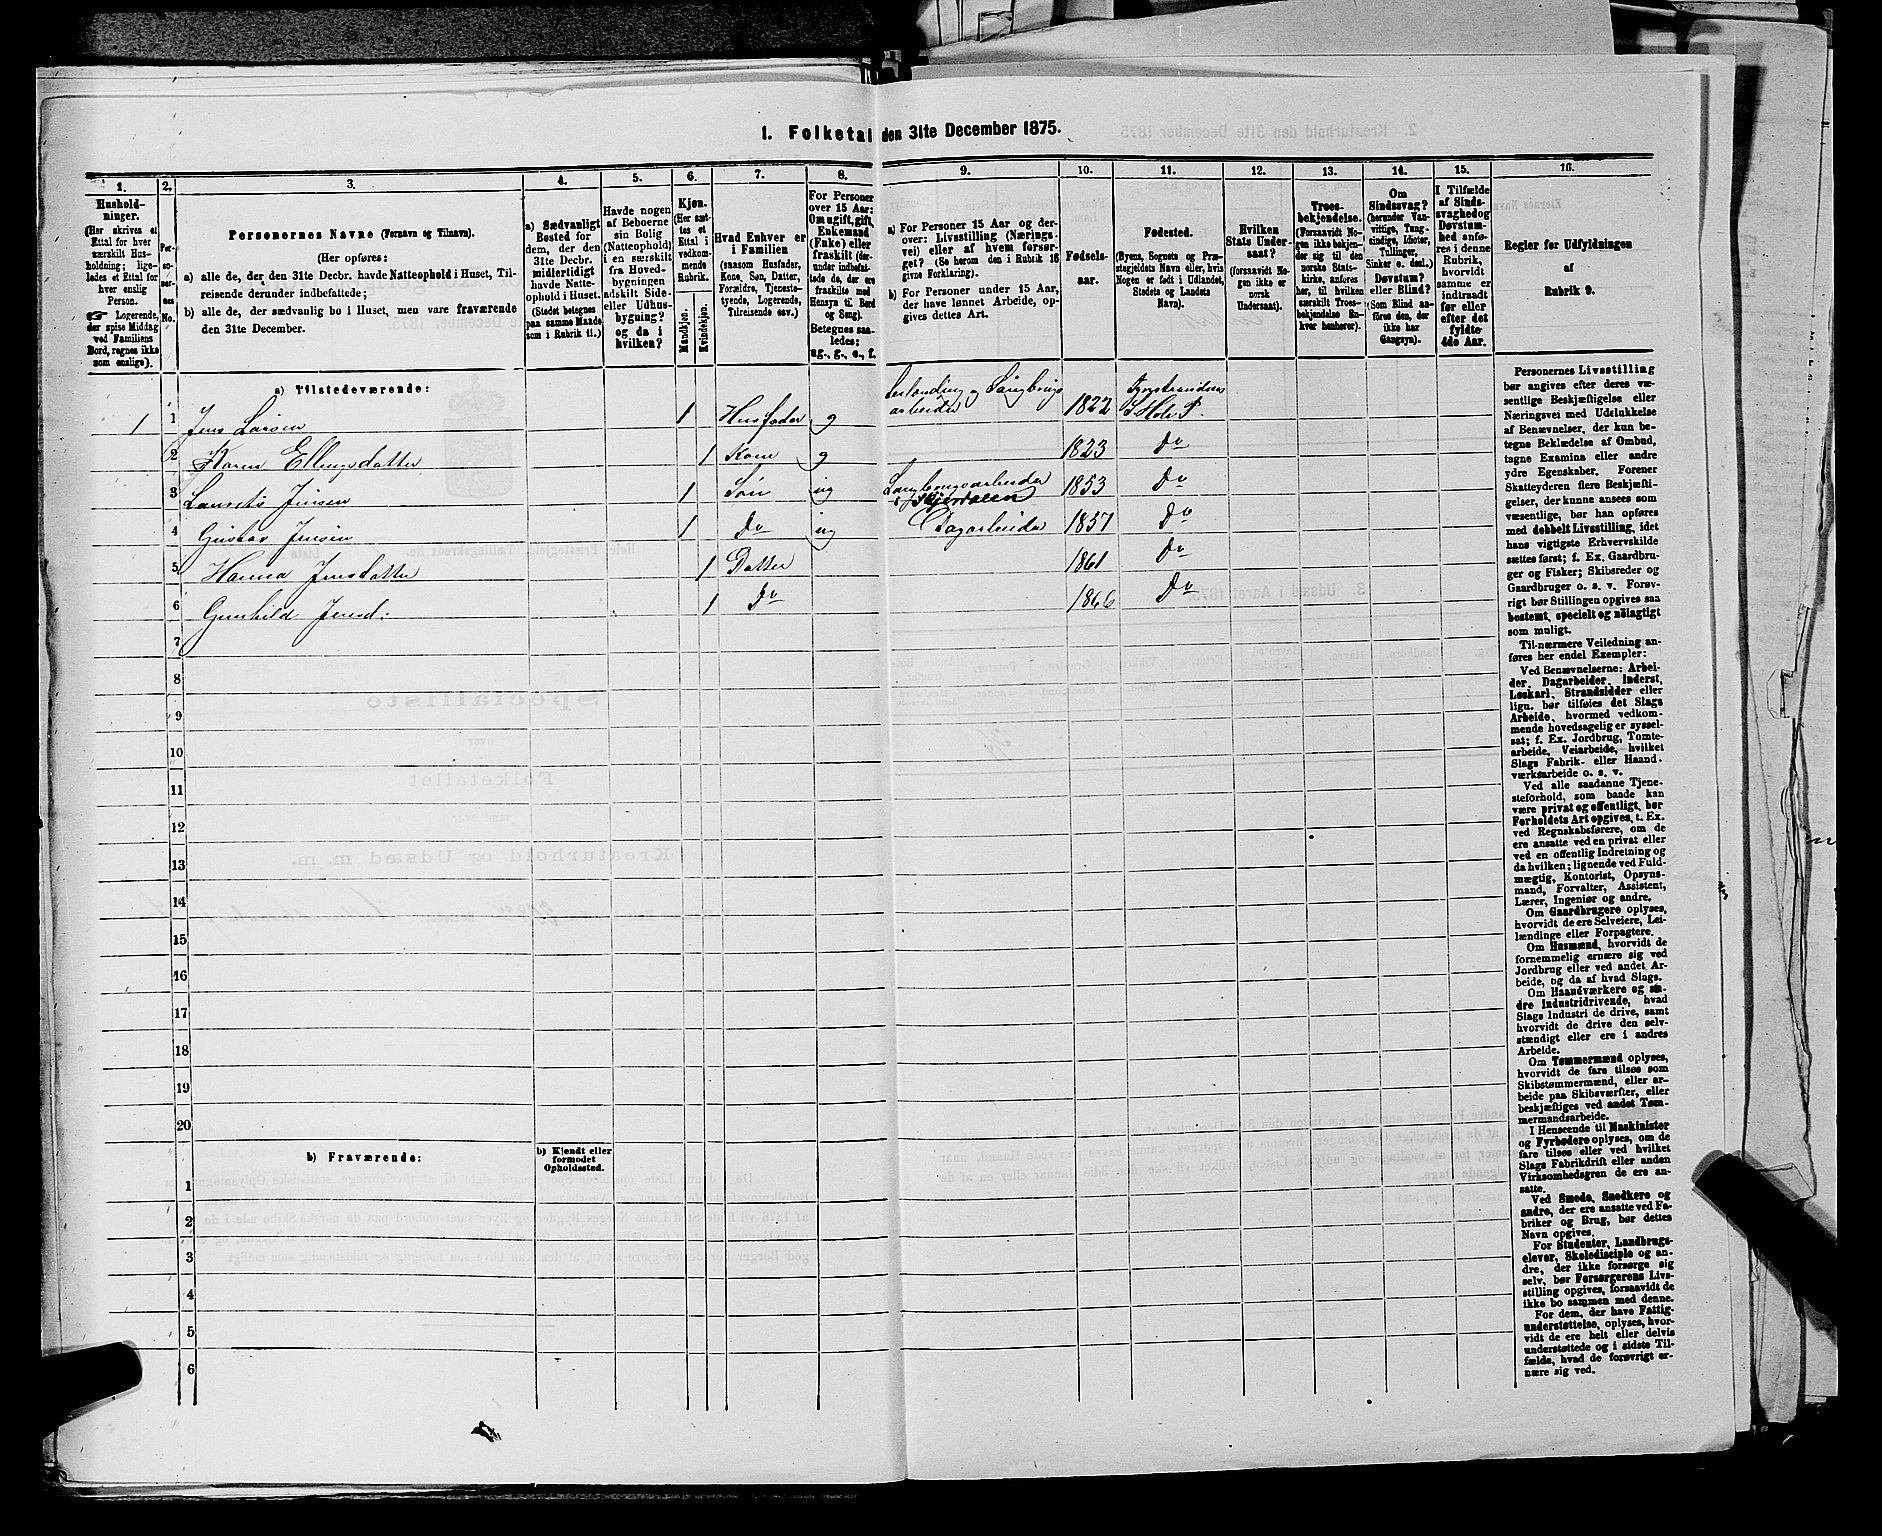 1. Folketal den 31te December 1875.
1.
2.
3.
4.
5.
6.
7.
8.
9.
10.
11.
12.
13.
14.
15.
16.
Hushold-
ninger.
(Her skrives et
Ettal for hver
særskilt Hus-
holdning; lige-
ledes et Ettal for
hver enslig
Person.
☞ Logerende,
der spise Middag
ved Familiens
Bord, regnes ikke
som enslige).
Per-
so-
ner-
nes
No.
Personernes Navne (Fornavn og Tilnavn).
(Her opføres:
a) alle de, der den 31te Decbr. havde Natteophold i Huset, Til-
reisende derunder indbefattede;
b) alle de, der sædvanlig bo i Huset, men vare fraværende
den 31te December.
a) Sædvanligt
Bosted for
dem, der den
31te Decbr.
midlertidigt
havde Natte-
ophold i Huset.
(Stedet betegnes
paa samme Maade
som i Rubrik 11.)
Havde nogen
af Beboerne
sin Bolig
(Natteophold)
i en særskilt
fra Hoved-
bygningen
adskilt Side-
eller Udhus-
bygning?
og da i
hvilken?
Kjøn.
(Her sæt-
tes et
Ettal i
vedkom-
mende
Rubrik.
Mandkjøn.
Kvindekjøn.
Hvad Enhver er
i Familien
(saasom Husfader,
Kone, Søn, Datter,
Forældre, Tjeneste-
tyende, Logerende,
Tilreisende osv.)
For Personer
over 15 Aar:
Om ugift, gift,
Enkemand
(Enke) eller
fraskilt (der-
under indbefat-
tede de, der ere
fraskilte med
Hensyn til Bord
og Seng).
Betegnes saa-
ledes:
ug., g., e., f.
a) For Personer 15 Aar og der-
over: Livsstilling (Nærings-
vei) eller af hvem forsør-
get? (Se herom den i Rubrik 16
givne Forklaring).
b) For Personer under 15 Aar,
der have lønnet Arbeide, op-
gives dettes Art.
Fødsels-
aar.
Fødested.
(Byens, Sognets og Præ-
stegjeldets Navn eller, hvis
Nogen er født i Udlandet,
Stedets og Landets
Navn).
Hvilken
Stats Under-
saat?
(forsaavidt No-
gen ikke er
norsk
Undersaat).
Troes-
bekjendelse.
(Forsaavidt No-
gen ikke bekjen-
der sig til den
norske Stats-
kirke, anføres
her, til hvilken
særskilt Troes-
bekjendelse En-
hver henhører).
Om
Sindssvag?
(herunder Van-
vittige, Tung-
sindige, Idioter,
Tullinger,
Sinker o. desl.)
Døvstum?
eller Blind?
(Som Blind an-
føres den, der
ikke har
Gangsyn).
I Tilfælde
af Sinds-
svaghed og
Døvstum-
hed anfø-
res i denne
Rubrik,
hvorvidt
samme er
indtraadt
før eller
efter det
fyldte
4de Aar.
Regler for Udfyldningen
af
Rubrik 9.
a) Tilstedeværende:
1 1 Jens Larsen 1 Husfader g arbeider 1822
2 Karen Ellingsdatter 1 Kone g 1823 Do
3 Laurits Jensen 1 Søn ug 1853 Do
4 Gustav Jensen 1 Do ug Dagarbeider 1857 Do
5 Hanna Jensdatter 1 Datter 1861 Do
6 Gunhild Jensd. 1 Do 1866 Do
7
8
9
10
11
12
13
14
15
16
17
18
19
20
b) Fraværende:
b) Kjendt eller
formodet
Opholdssted.
1
2
3
4
5
6
Personernes Livsstilling
bør angives efter deres væ-
sentlige Beskjæftigelse eller
Næringsvei med Udelukkelse
af Benævnelser, der kun be-
tegne Beklædelse af Ombud,
tagne Examina eller andre
ydre Egenskaber. Forener
Skatteyderen flere Beskjæfti-
gelser, der kunne ansees som
væsentlige, bør han opføres
med dobbelt Livsstilling, idet
hans vigtigste Erhvervskilde
sættes først; f. Ex. Gaardbru-
ger og Fisker; Skibsreder og
Gaardbruger o. s. v. Forøv-
rigt bør Stillingen opgives saa
bestemt, specielt og nøiagtigt
som muligt.
Til nærmere Veiledning an-
føres her endel Exempler:
Ved Benævnelserne: Arbei-
der, Dagarbeider, Inderst,
Løskarl, Strandsidder eller
lign. bør tilføies det Slags
Arbeide, hvormed vedkom-
mende hovedsagelig er syssel-
sat; f. Ex. Jordbrug, Tomte-
arbeide, Veiarbeide, hvilket
Slags Fabrik- eller Haand-
værksarbeide o. s. v.
Ved alle saadanne Tjene-
steforhold, som baade kan
være privat og offentligt, bør
Forholdets Art opgives, t. Ex.
ved Regnskabsførere, om de
ere ansatte ved en privat eller
ved en offentlig Indretning og
da hvilken; lignende ved Fuld-
mægtig, Kontorist, Opsyns-
mand, Forvalter, Assistent,
Lærer, Ingeniør og andre.
Om Gaardbrugere oplyses,
hvorvidt de ere Selveiere, Lei-
lændinge eller Forpagtere.
Om Husmænd, hvorvidt de
fornemmelig ernære sig ved
Jordbrug eller ved andet Ar-
beide, og da af hvad Slags.
Om Haandværkere og an-
dre Industridrivende, hvad
Slags Industri de drive, samt
hvorvidt de drive den selv-
stændigt eller ere i andres
Arbeide.
Om Tømmermænd oplyses,
hvorvidt de fare tilsøs som
Skibstømmermænd, eller ar-
beide paa Skibsværfter, eller
beskjæftiges ved andet Tøm-
mermandsarbeide.
I Henseende til Maskinister
og Fyrbødere oplyses, om de
fare tilsøs eller ved hvilket
Slags Fabrikdrift eller anden
Virksomhedsgren de ere an-
satte.
Ved Smede, Snedkere og
andre, der ere ansatte ved Fa-
briker og Brug, bør dettes
Navn opgives.
For Studenter, Landbrugs-
elever, Skoledisciple og an-
dre, der ikke forsørge sig
selv, bør Forsørgerens Livs-
stilling opgives, forsaavidt de
ikke bo sammen med denne.
For dem, der have Fattig-
understøttelse, oplyses, hvor-
vidt de ere helt eller delvis
understøttede og i sidste Til-
fælde, hvad de forøvrigt er-
nære sig ved.